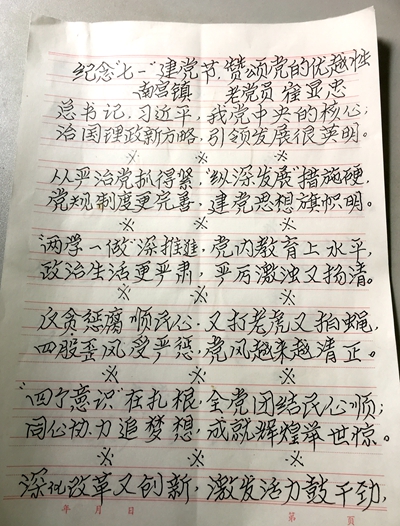 纪念"七一"建党节,赞颂党的优越性
南宫镇 老党员 崔显忠
总书记,习近平,我党中央的核心;
治国理政新方略,引领发展很英明。
※ ※ ※
从严治党抓得紧,"纵深发展"措施硬,
党规制度更完善,建党思想旗帜明。
※ ※ ※
"两学一做"深推进,党内教育上水平,
政治生活更严肃,严厉激浊又扬清。
※ ※ ※
反贪惩腐顺民心,又打老虎又拍蝇,
四股歪风受严惩,党风越来越清正。
※ ※ ※
"四个意识"在扎根,全党团结民心顺;
同心协力追梦想,成就辉煌举世惊。
※ ※ ※
深化改革又创新,激发活力鼓干劲,
年 月 日 第 页